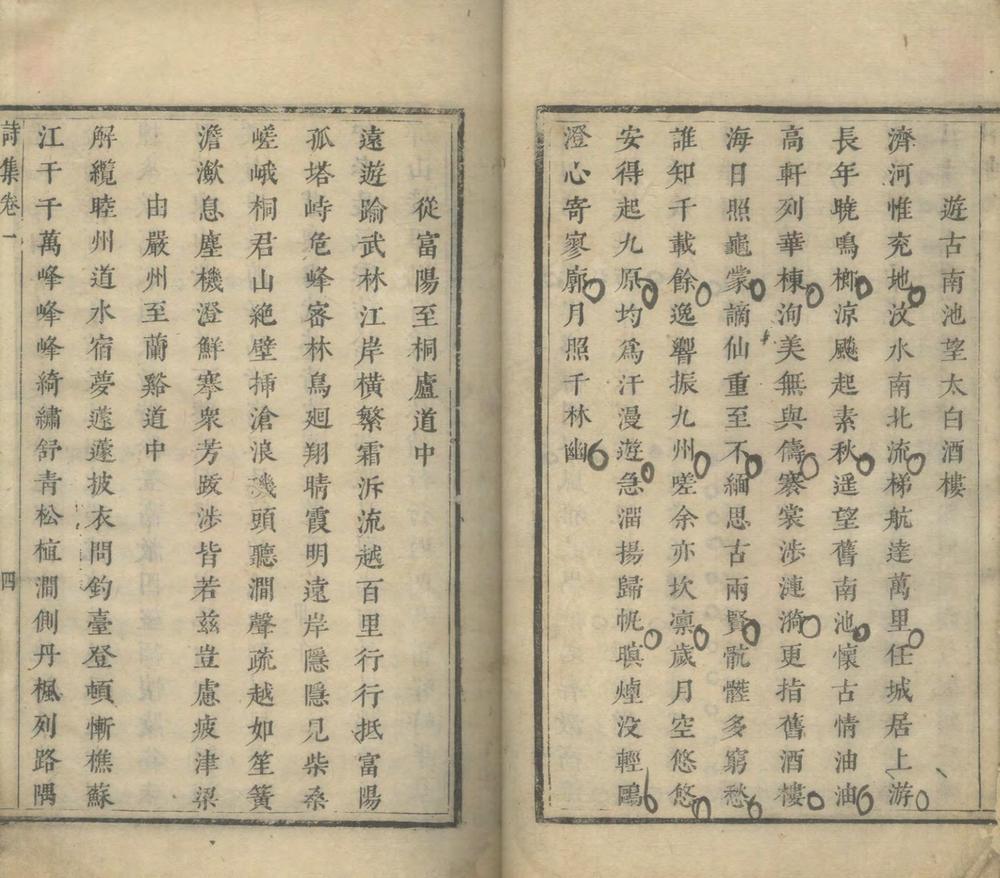 遊古南池望太白酒樓
濟河惟兗地汶水南北流梯航達萬里任城居上游
長年曉鳴榔涼颷起素秋遥望舊南池懷古情油油
高軒列華棟洵美無與儔褰裳涉漣漪更指舊酒樓
海日照龜蒙謫仙重至不緬思古兩賢骯髒多窮愁
誰知千載餘逸響振九州嗟余亦坎凛歲月空悠悠
安得起九原均爲汗漫遊急溜揚歸帆暝煙没輕鷗
澄心寄寥廓月照千林幽
從富陽至桐廬道中
遠遊踰武林江岸橫繁霜泝流越百里行行抵富陽
孤塔峙危峰密林鳥廻翔晴霞明遠岸隱隱見柴桑
嵯峨桐君山絶壁揷滄浪磯頭聽澗聲疏越如笙簧
澹漱息塵機澄鮮搴衆芳跋涉皆若兹豈慮疲津梁
由嚴州至蘭谿道中
解纜睦州道水宿夢蘧蘧披衣問釣臺登頓慚樵蘇
江干千萬峰峰峰綺繡舒青松植澗側丹楓列路隅
詩集卷一
四